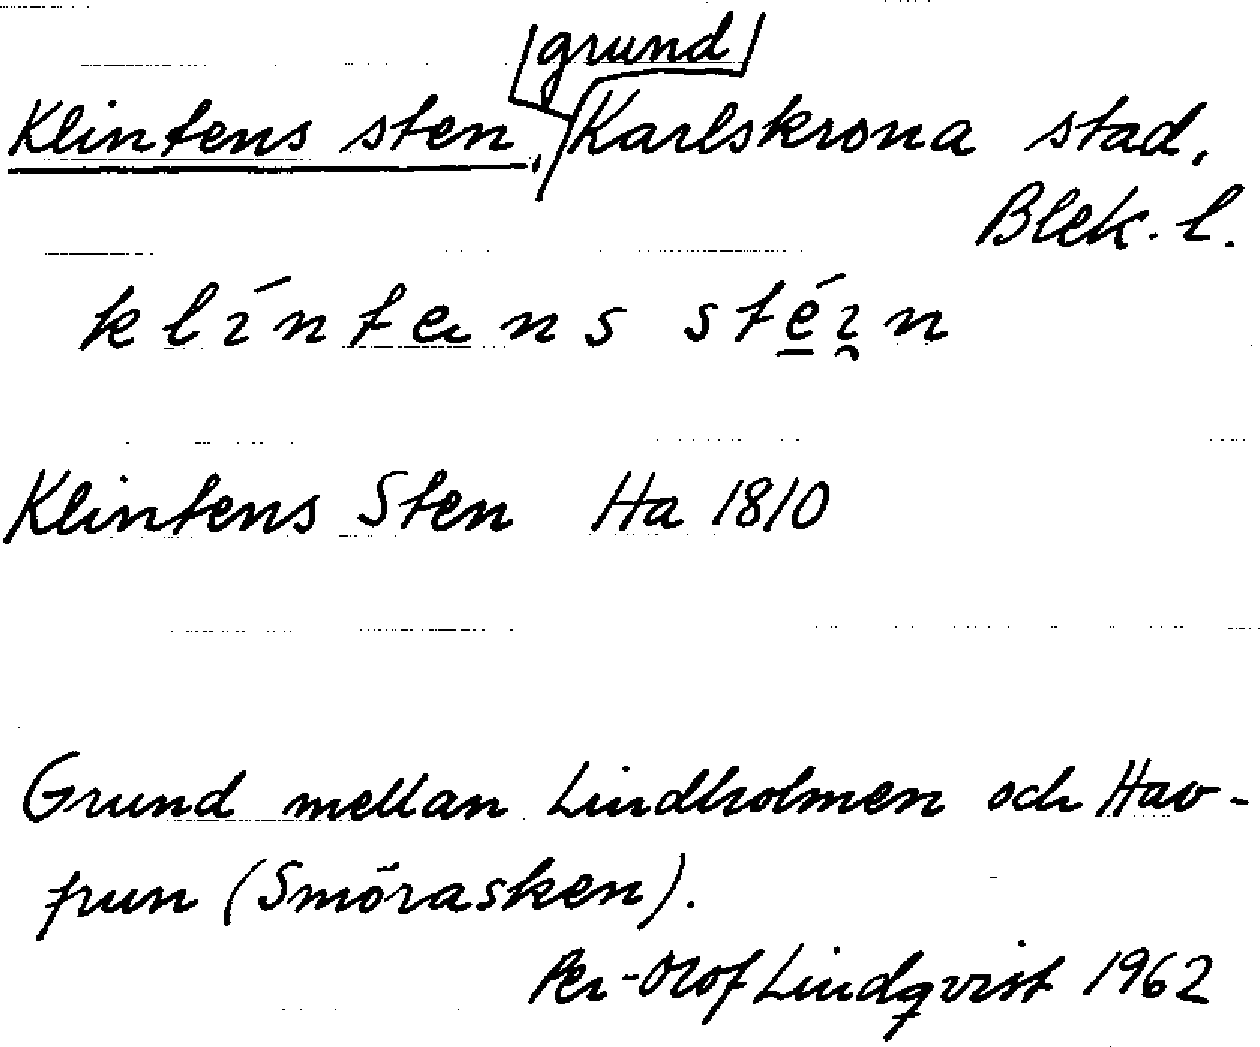 grund
Klintens sten, Karlskrona stad,
Blek. l.
klíntens stéin
Klintens Sten Ha 1810
Grund mellan Lindholmen och Hav-
frun (Smörasken).
Per-Olof Lindqvist 1962